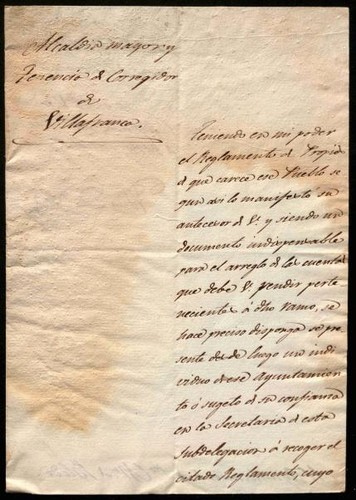 Alcaldia mayor y
Tenencia de Corregidor
de
Villafranca.
Teniendo en mi poder
el Reglamento de Propios
de que carece ese Pueblo se
gun asi lo manifestó su
antecesor de V. y siendo un
documento indispensable
para el arreglo de las cuentas
que debe V. rendir perte
necientes á dho ramo, se
hace preciso disponga se pre
sente desde luego un indi
viduo de ese Ayuntamien
to ó sugeto de su confianza
en la Secretaría de esta
subdelegacion á recoger el
citado Reglamento, cuyo